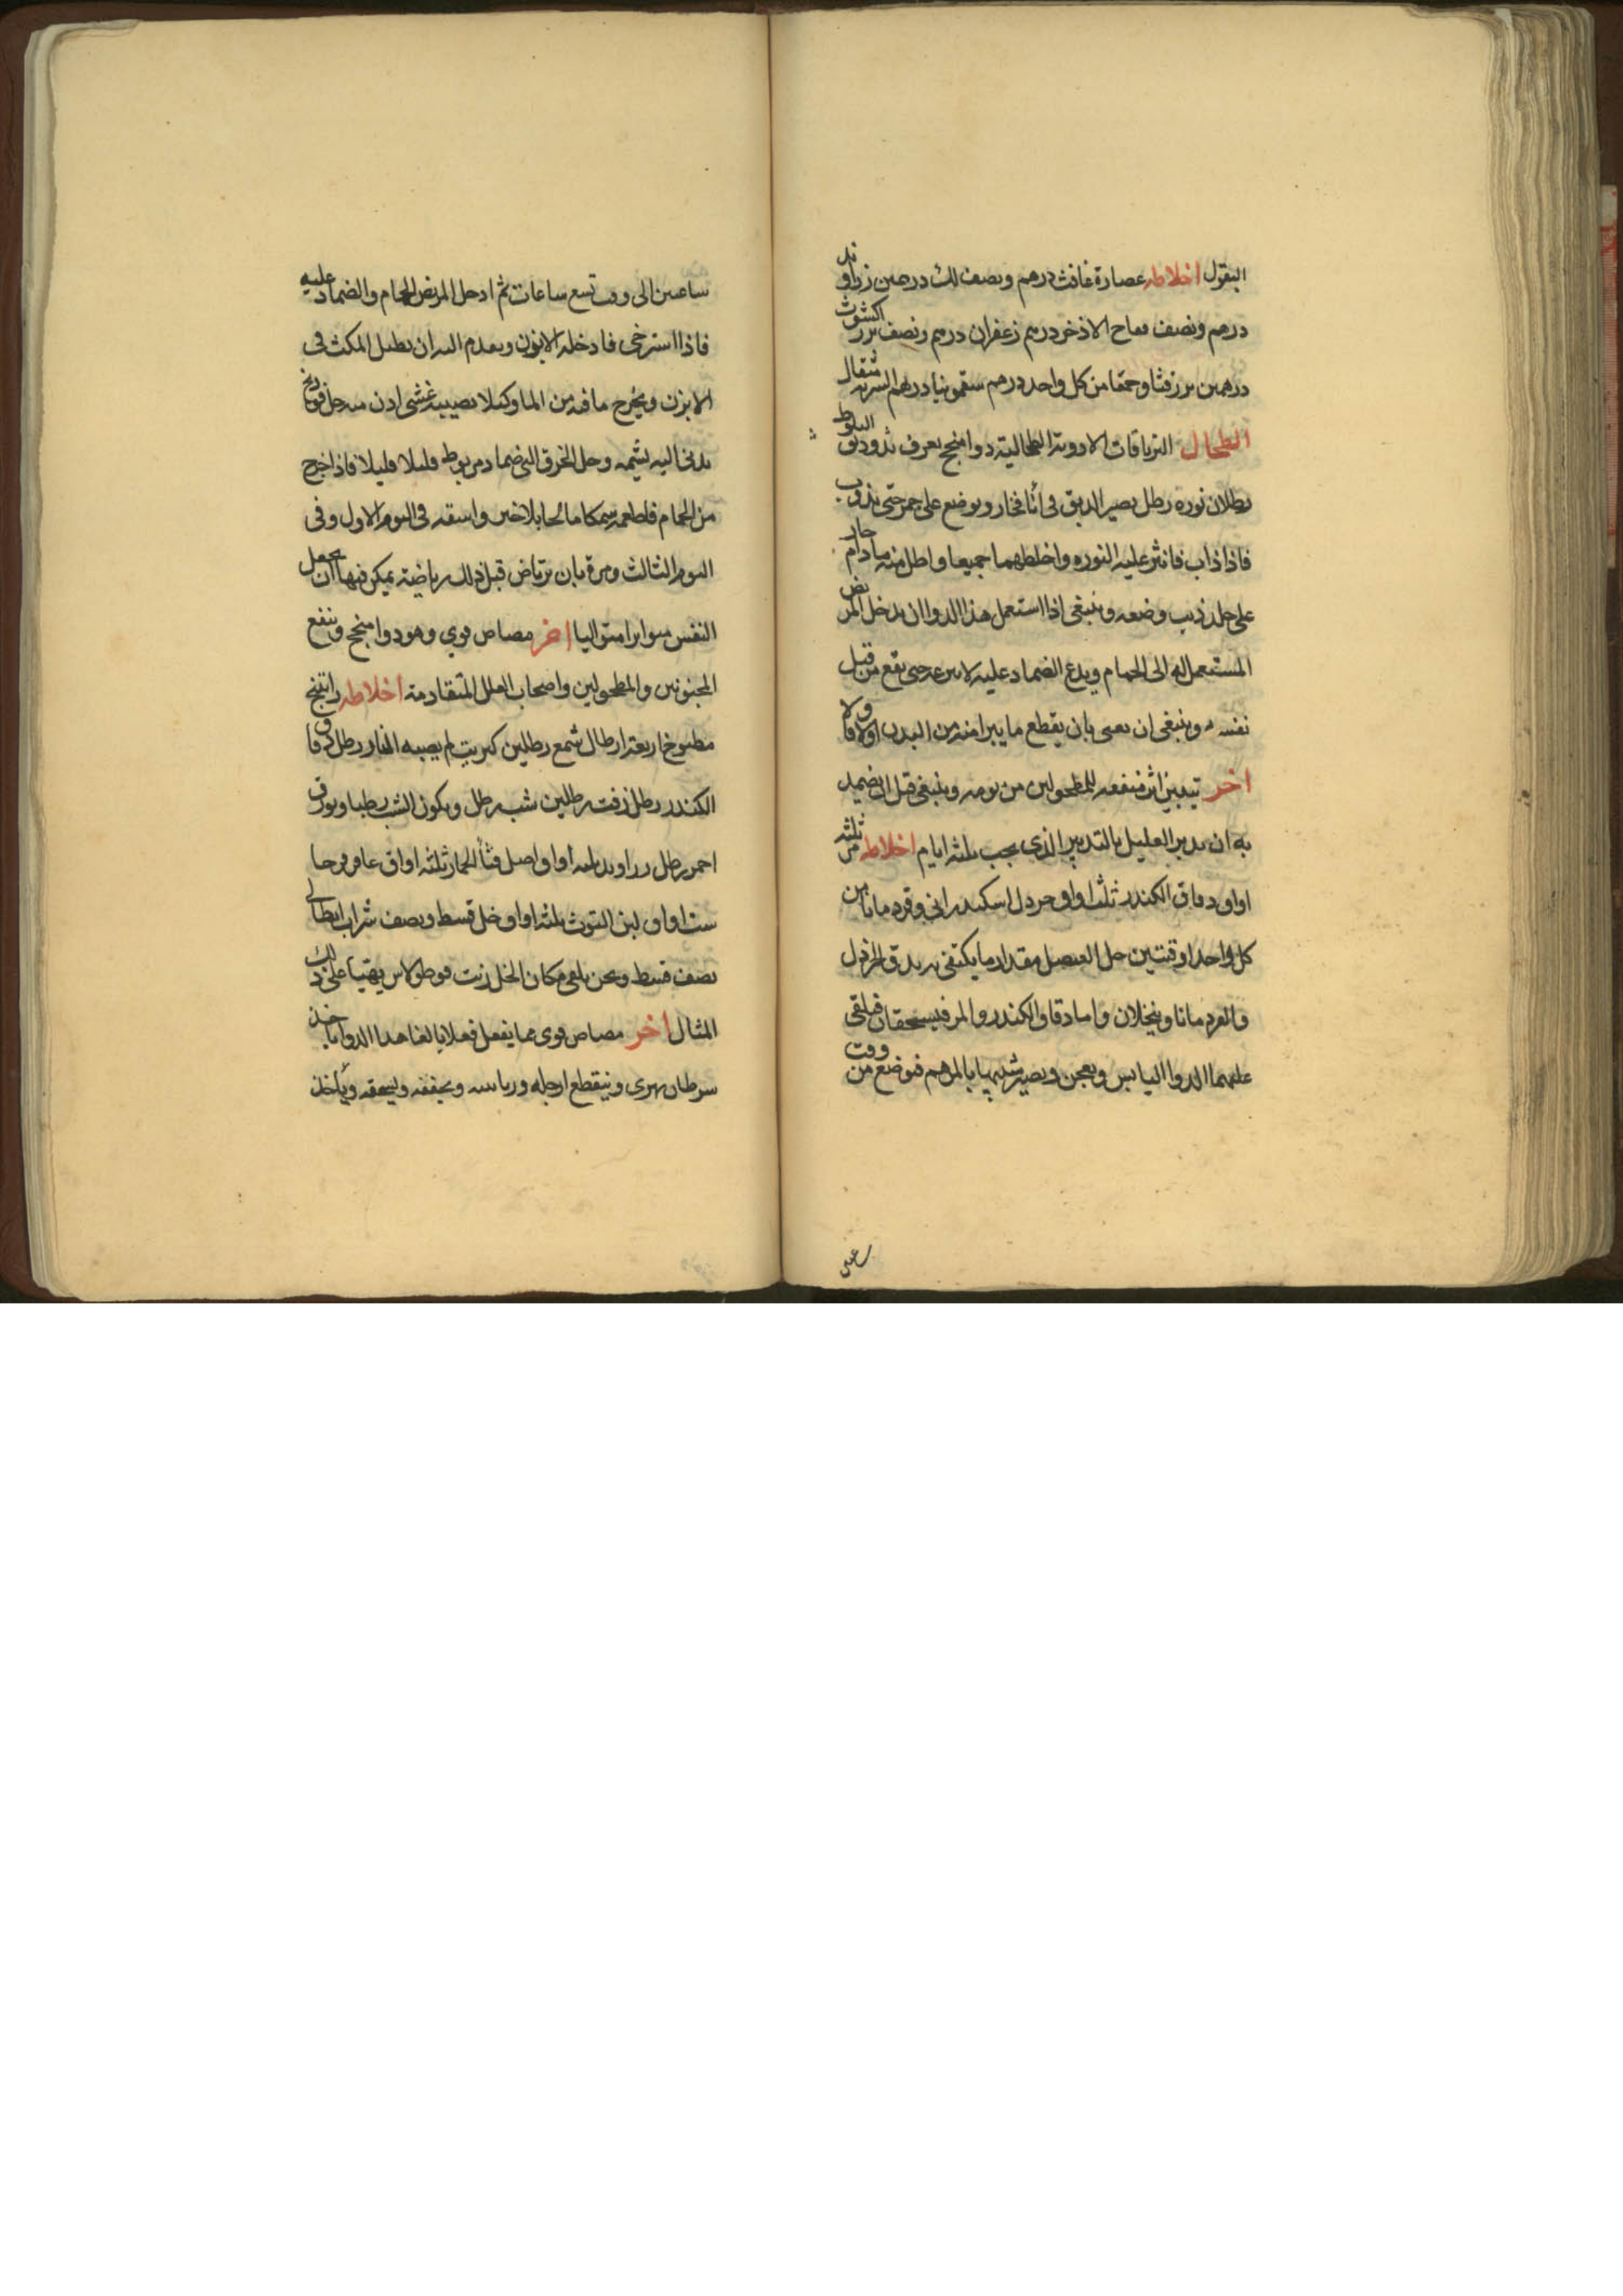 البقول اخلاطه عصارة غافث درهم ونصف لك درهمين زراوند
درهم ونصف فقاح الاذخر درهم زعفران درهم ونصف بزر اكشوث
درهمين بزر قثا وحمقا من كل واحد درهم سقمونيا درهم الشربه مثقال
الطحال الترياقات الادوية الطحالية دوا منجح يعرف بذو دبق البلوط
رطلان نوره رطل يصير الدبق في انا فخار ويوضع على جمر حتى يذوب
فاذا ذاب فانثر عليه النوره واخلطهما جميعا واطل منه ما دام حار
على جلد ذيب وضعه وينبغي اذا استعمل هذا الدوا ان يدخل المريض
المستعمل له الى الحمام ويدع الضماد عليه لا ينزعه حتى يقع من قبل
نفسه وينبغي ان يعنى بان يقطع ما يبرا منه من البدن اولا فاولا
اخر تتبين اثر منفعه للمطحولين من يومه وينبغي قبل ان يضمد
به ان يدبر العليل بالتدبير الذي يجب ثلثه ايام اخلاطه مر ثلثه
اواق دقاق الكندر ثلث اواق خردل اسكندراني وقردمانا من
كل واحد اوقتين خل العنصل مقدار ما يكتفى به يدق الخردل
والقردمانا وينخلان واما دقاق الكندر والمر فيسحقان فيلقى
عليهما الدوا اليابس ويعجن ويصير شبيها بالمرهم فيوضع من وقت
ساعتين الى وقت تسع ساعات ثم ادخل المريض الحمام والضماد عليه
فاذا استرخى فادخله الابزن ويقدم اليه ان يطيل المكث في
الابزن ويخرج ما فيه من الما وكيلا يصيبه غشي ادن منه خل فودنج
يدنى اليه يشمه وحل الخرق التي ضمادمربوط قليلا قليلا فاذا خرج
من الحمام فاطعمه سمكا مالحا بلا خبز واسقه في اليوم الاول وفي
اليوم الثالث ومره بان يرتاض قبل ذلك رياضيه يمكن فيها ان يجعل
النفس متواترا متواليا اخر مصاص قوي وهو دوا منجح وينفع
المجنونين والمطحولين واصحاب العلل المتقادمة اخلاطه راتينج
مطبوخ اربعة ارطال شمع رطلين كبريت لم يصيبه النار رطل دقاق
الكندر رطل زفت رطلين شب رطل ويكون الشب رطبا وبورق
احمر رطل زراوند ثلثه اواق اصل قثأ الحمار ثلثه اواق عاقرقرحا
ست اواق لبن التوت ثلثه اواق خل قسط ونصف شراب ايطالي
نصف قسط ونحن نلقي مكان الخل زيت فوطولاس يهتيا على ذلك
المثال اخر مصاص قوي مما يفعل فعلا بالغا هذا الدوا ياخذ
سرطان نهري ويتقطع ارجله وزباسه ويجففه ويسحقه ويأخذ